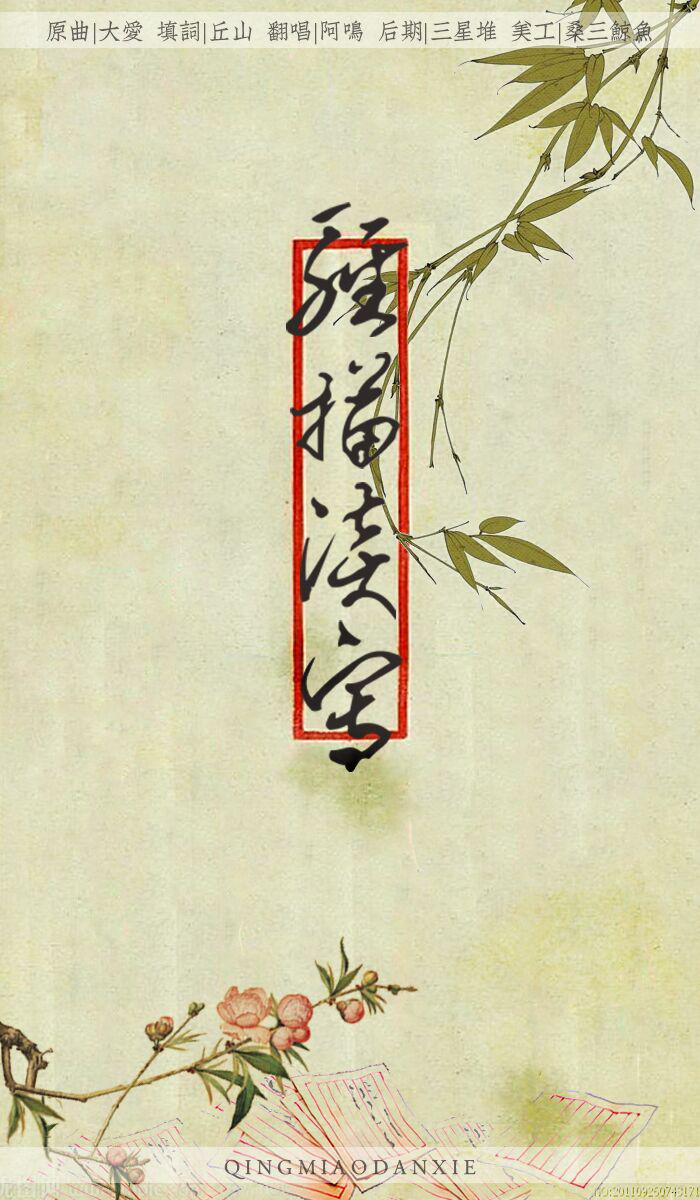 原曲|大愛 填詞|丘山 翻唱|阿鳴 后期|三星堆 美工|桑三鯨魚
輕描淡寫
QINGMIAODANXIE
NO:20110926074313